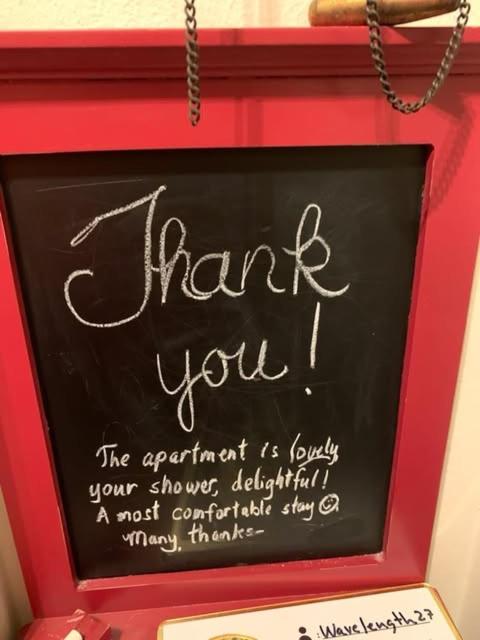 Thank
you!
The apartment is lovely
your shower, delightful!
A most comfortable stay ☺
Many, thanks-
: Wavelength27